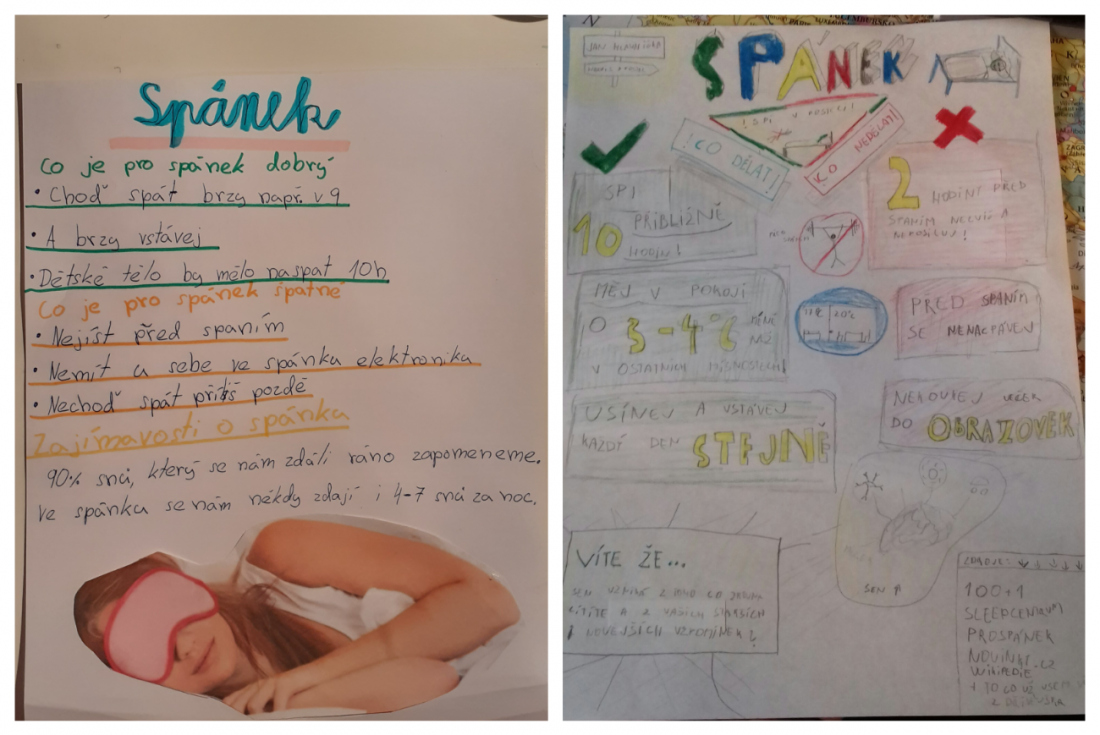 Spánek
Co je pro spánek dobrý
• Choď spát brzy např. v 9
• A brzy vstávej
• Dětské tělo by mělo naspat 10h
Co je pro spánek špatné
• Nejíst před spaním
• Nemít u sebe ve spánku elektroniku
• Nechoď spát příliš pozdě
Zajímavosti o spánku
90% snů, který se nám zdáli ráno zapomeneme.
Ve spánku se nám někdy zdají i 4-7 snů za noc.
SPÁNEK
! SPI V
! CO DĚLAT !
CO NEDĚLAT!
SPI
10 PŘIBLIŽNĚ
HODIN!
2 HODINY PŘED
SPANÍM NECVIČ A
NEPOSILUJ!
MĚJ V POKOJI
O 3-4°C MÉNĚ
NEŽ
V OSTATNÍCH MÍSTNOSTECH!
PŘED SPANÍM
SE NENACPÁVEJ
USÍNEJ A VSTÁVEJ
KAŽDÝ DEN STEJNĚ
DO OBRAZOVEK
20°C
SEN
VÍTE ŽE...
SEN VZNIKÁ Z TOHO CO ZROVNA
CÍTÍTE A Z VAŠICH STARŠÍCH
I NOVĚJŠÍCH VZPOMÍNEK!
ZDROJE:
100+1
SLEEPCENTRUM
PROSPÁNEK
NOVINKY.CZ
WIKIPEDIE
+ TO CO UŽ VÍM